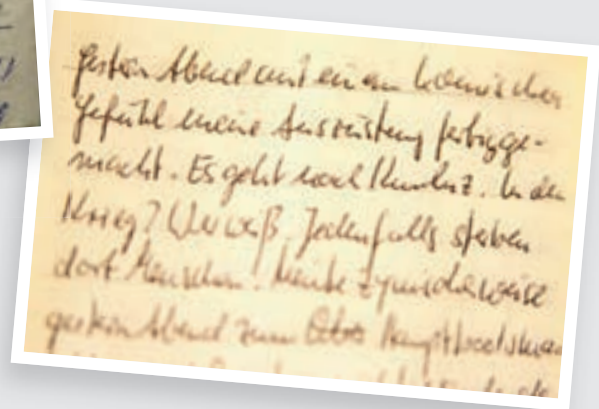 gestern Abend mit einem komischen
Gefühl meine Ausrüstung fertigge-
macht. Es geht nach Kunduz. In den
Krieg? Wer weiß. Jedenfalls sterben
dort Menschen. Heute zynischerweise
gestern Abend zum Hauptbootsmann